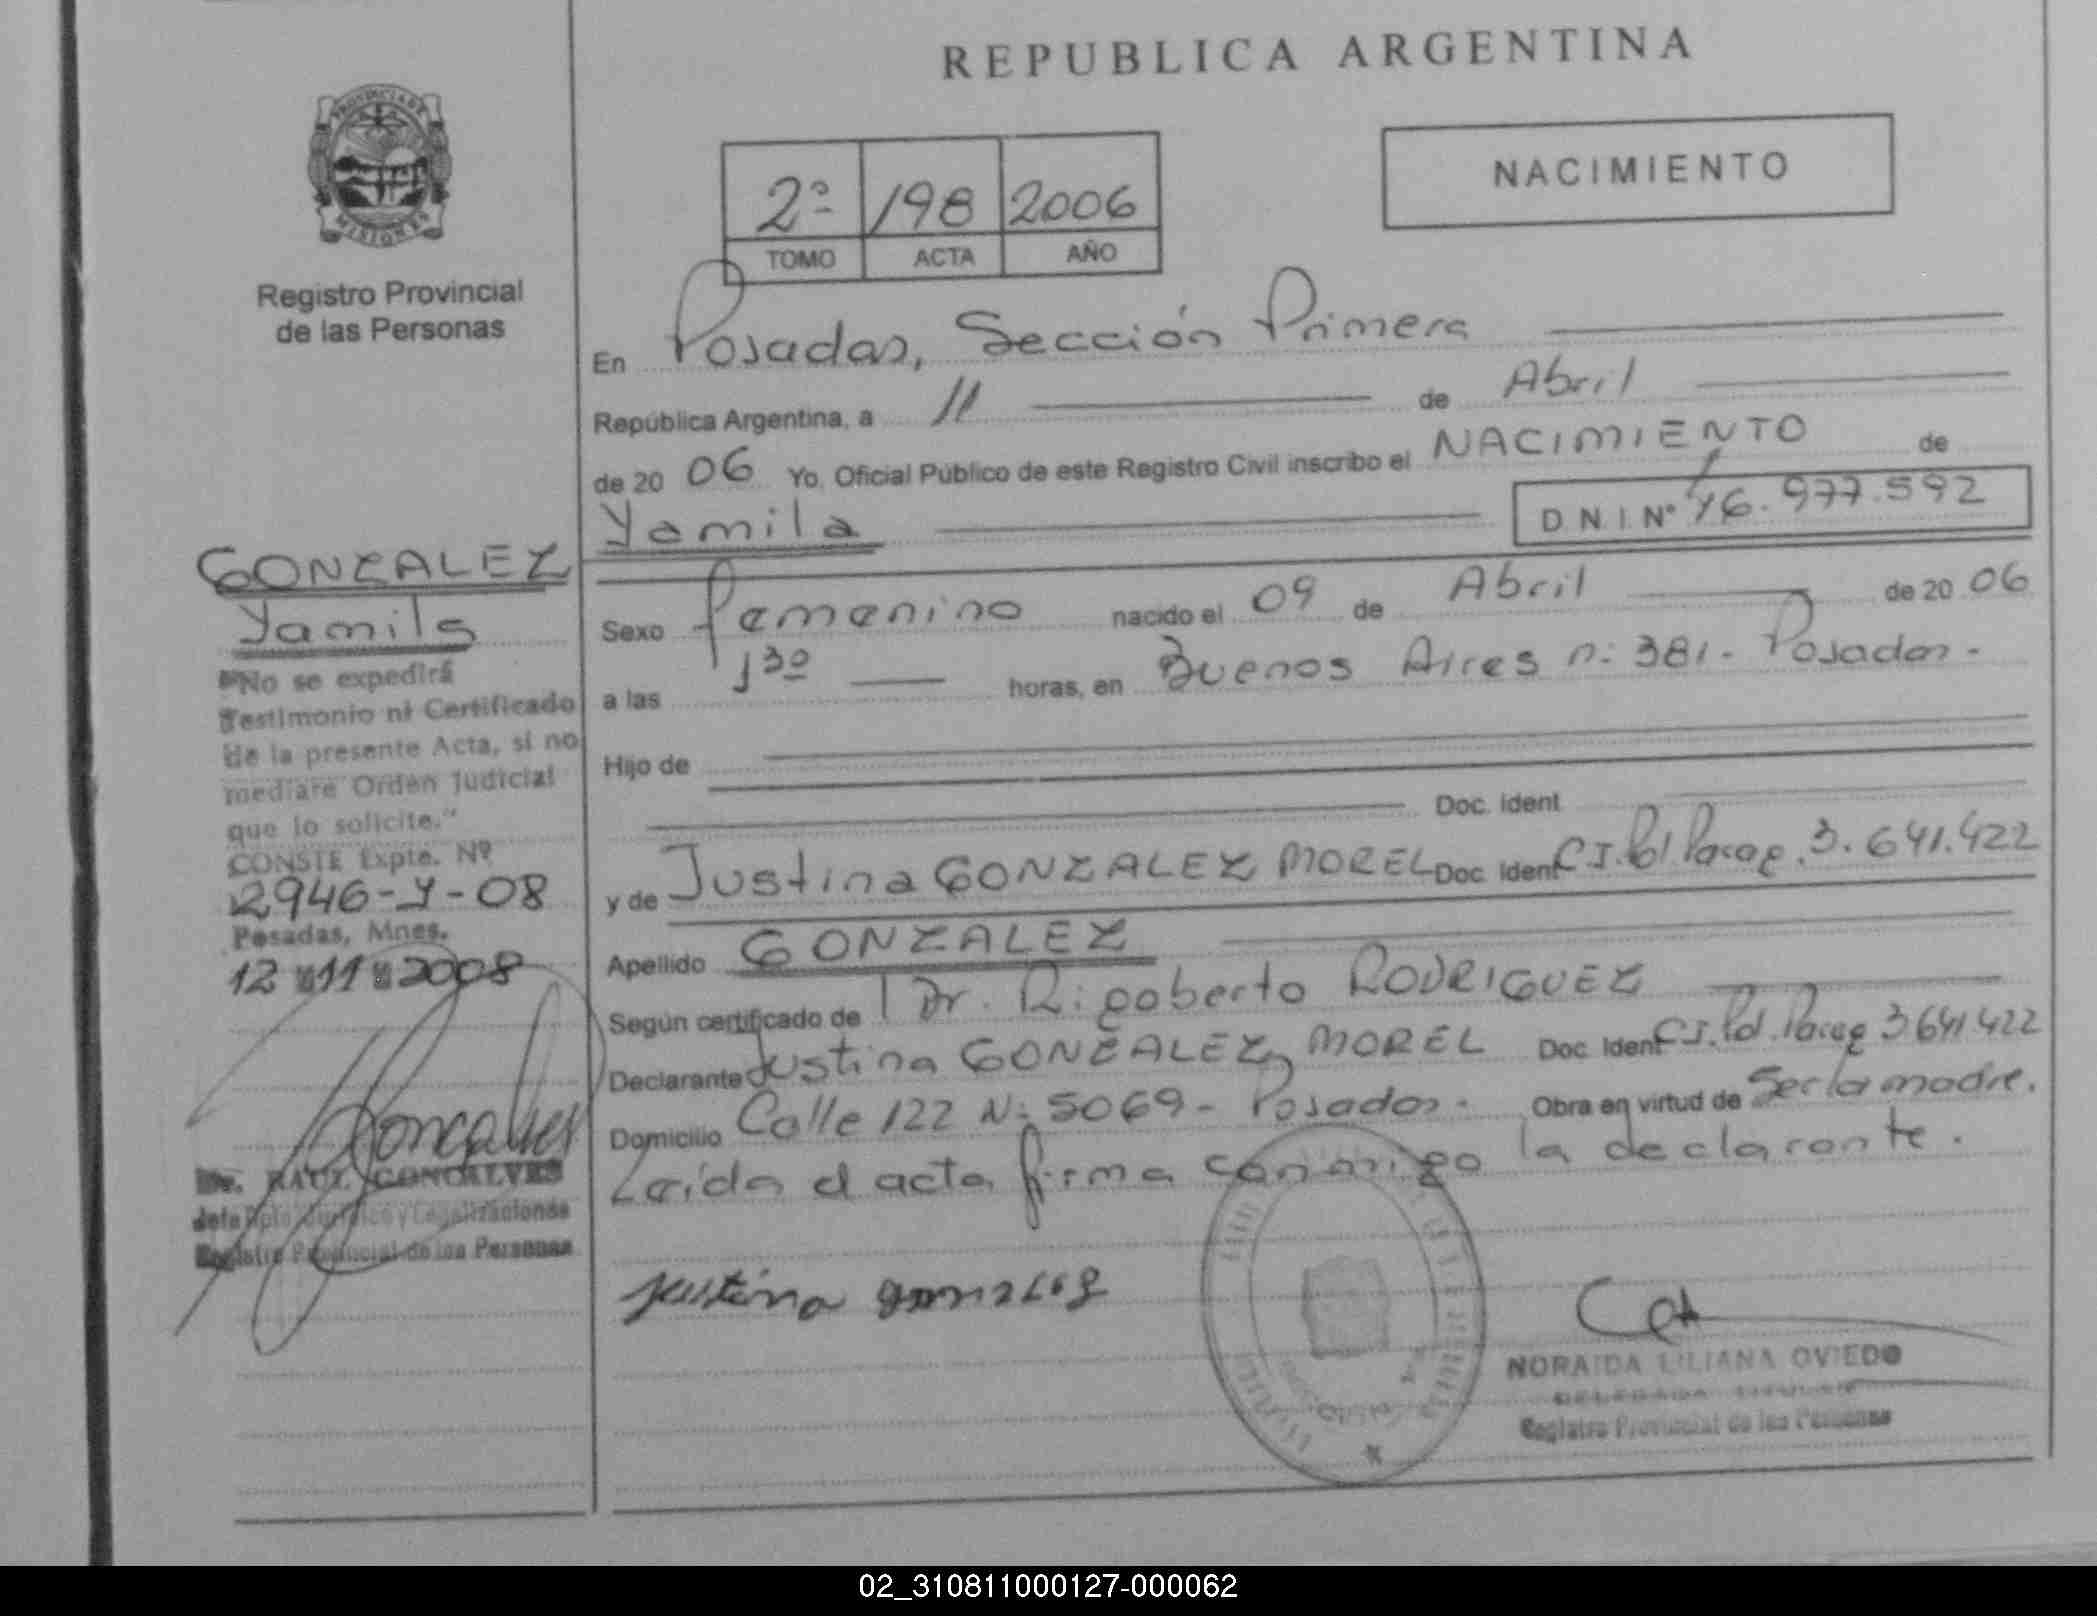 REPUBLICA ARGENTINA
PROVINCIA DE
MISIONES
Registro Provincial
de las Personas
2º 198 2006
TOMO ACTA AÑO
NACIMIENTO
En Posadas, Sección Primera
República Argentina, a 11 de Abril
de 20 06 Yo, Oficial Público de este Registro Civil inscribo el NACIMIENTO de
Yamila D N I Nº 46.977.592
Sexo femenino nacido el 09 de Abril de 20 06
a las 1³⁰ horas, en Buenos Aires nº 381 - Posadas -
Hijo de
Doc. Ident
y de Justina GONZALEZ MOREL Doc. Ident C.I. Pol Parag. 3.641.422
Apellido GONZALEZ
Según certificado de Dr. Rigoberto RODRIGUEZ
Declarante Justina GONZALEZ MOREL Doc. Ident C.I. Pol. Parag 3641422
Domicilio Calle 122 Nº 5069 - Posadas - Obra en virtud de Ser la madre.
Leída el acta firma conmigo la declarante.
justina gonzalez
NORAIDA LILIANA OVIEDO
DELEGADA TITULAR
Registro Provincial de las Personas
GONZALEZ
Yamila
"No se expedirá
Testimonio ni Certificado
de la presente Acta, si no
mediare Orden Judicial
que lo solicite."
CONSTE Expte. Nº
2946-Y-08
Posadas, Mnes.
12 11 2008
Goncalves
Dr. RAUL GONCALVES
Jefe Dpto. Jurídico y Legalizaciones
Registro Provincial de las Personas
02_310811000127-000062